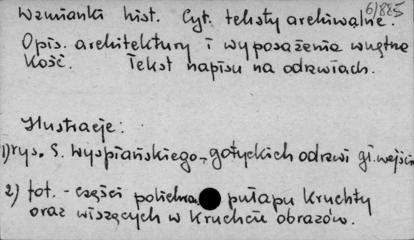 6/885
Wzmianki hist. Cyt. teksty archiwalne.
Opis. architektury i wyposażenia wnętrz
Kość. Tekst napisu na odrzwiach.
Ilustracje:
1) rys. S. Wyspiańskiego - gotyckich odrzwi gł. wejścia
2) fot. - części polichr. pułapu Kruchty
oraz wiszących w Kruchcie obrazów.